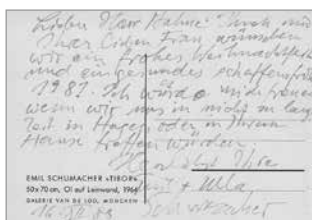 Lieber Herr Hahne! Ihnen und
Ihrer lieben Frau wünschen
wir ein frohes Weihnachtsfest
und ein gesundes
198 . Ich würde mich freuen
wenn wir uns in nicht zu lang
Zeit in Hagen oder in Ihrem
Hause treffen würden.
Ihre
EMIL SCHUMACHER »TIBOR«
50x70 cm, Öl auf Leinwand, 1964
GALERIE VAN DE LOO, MÜNCHEN
+ Ulla
Schumacher